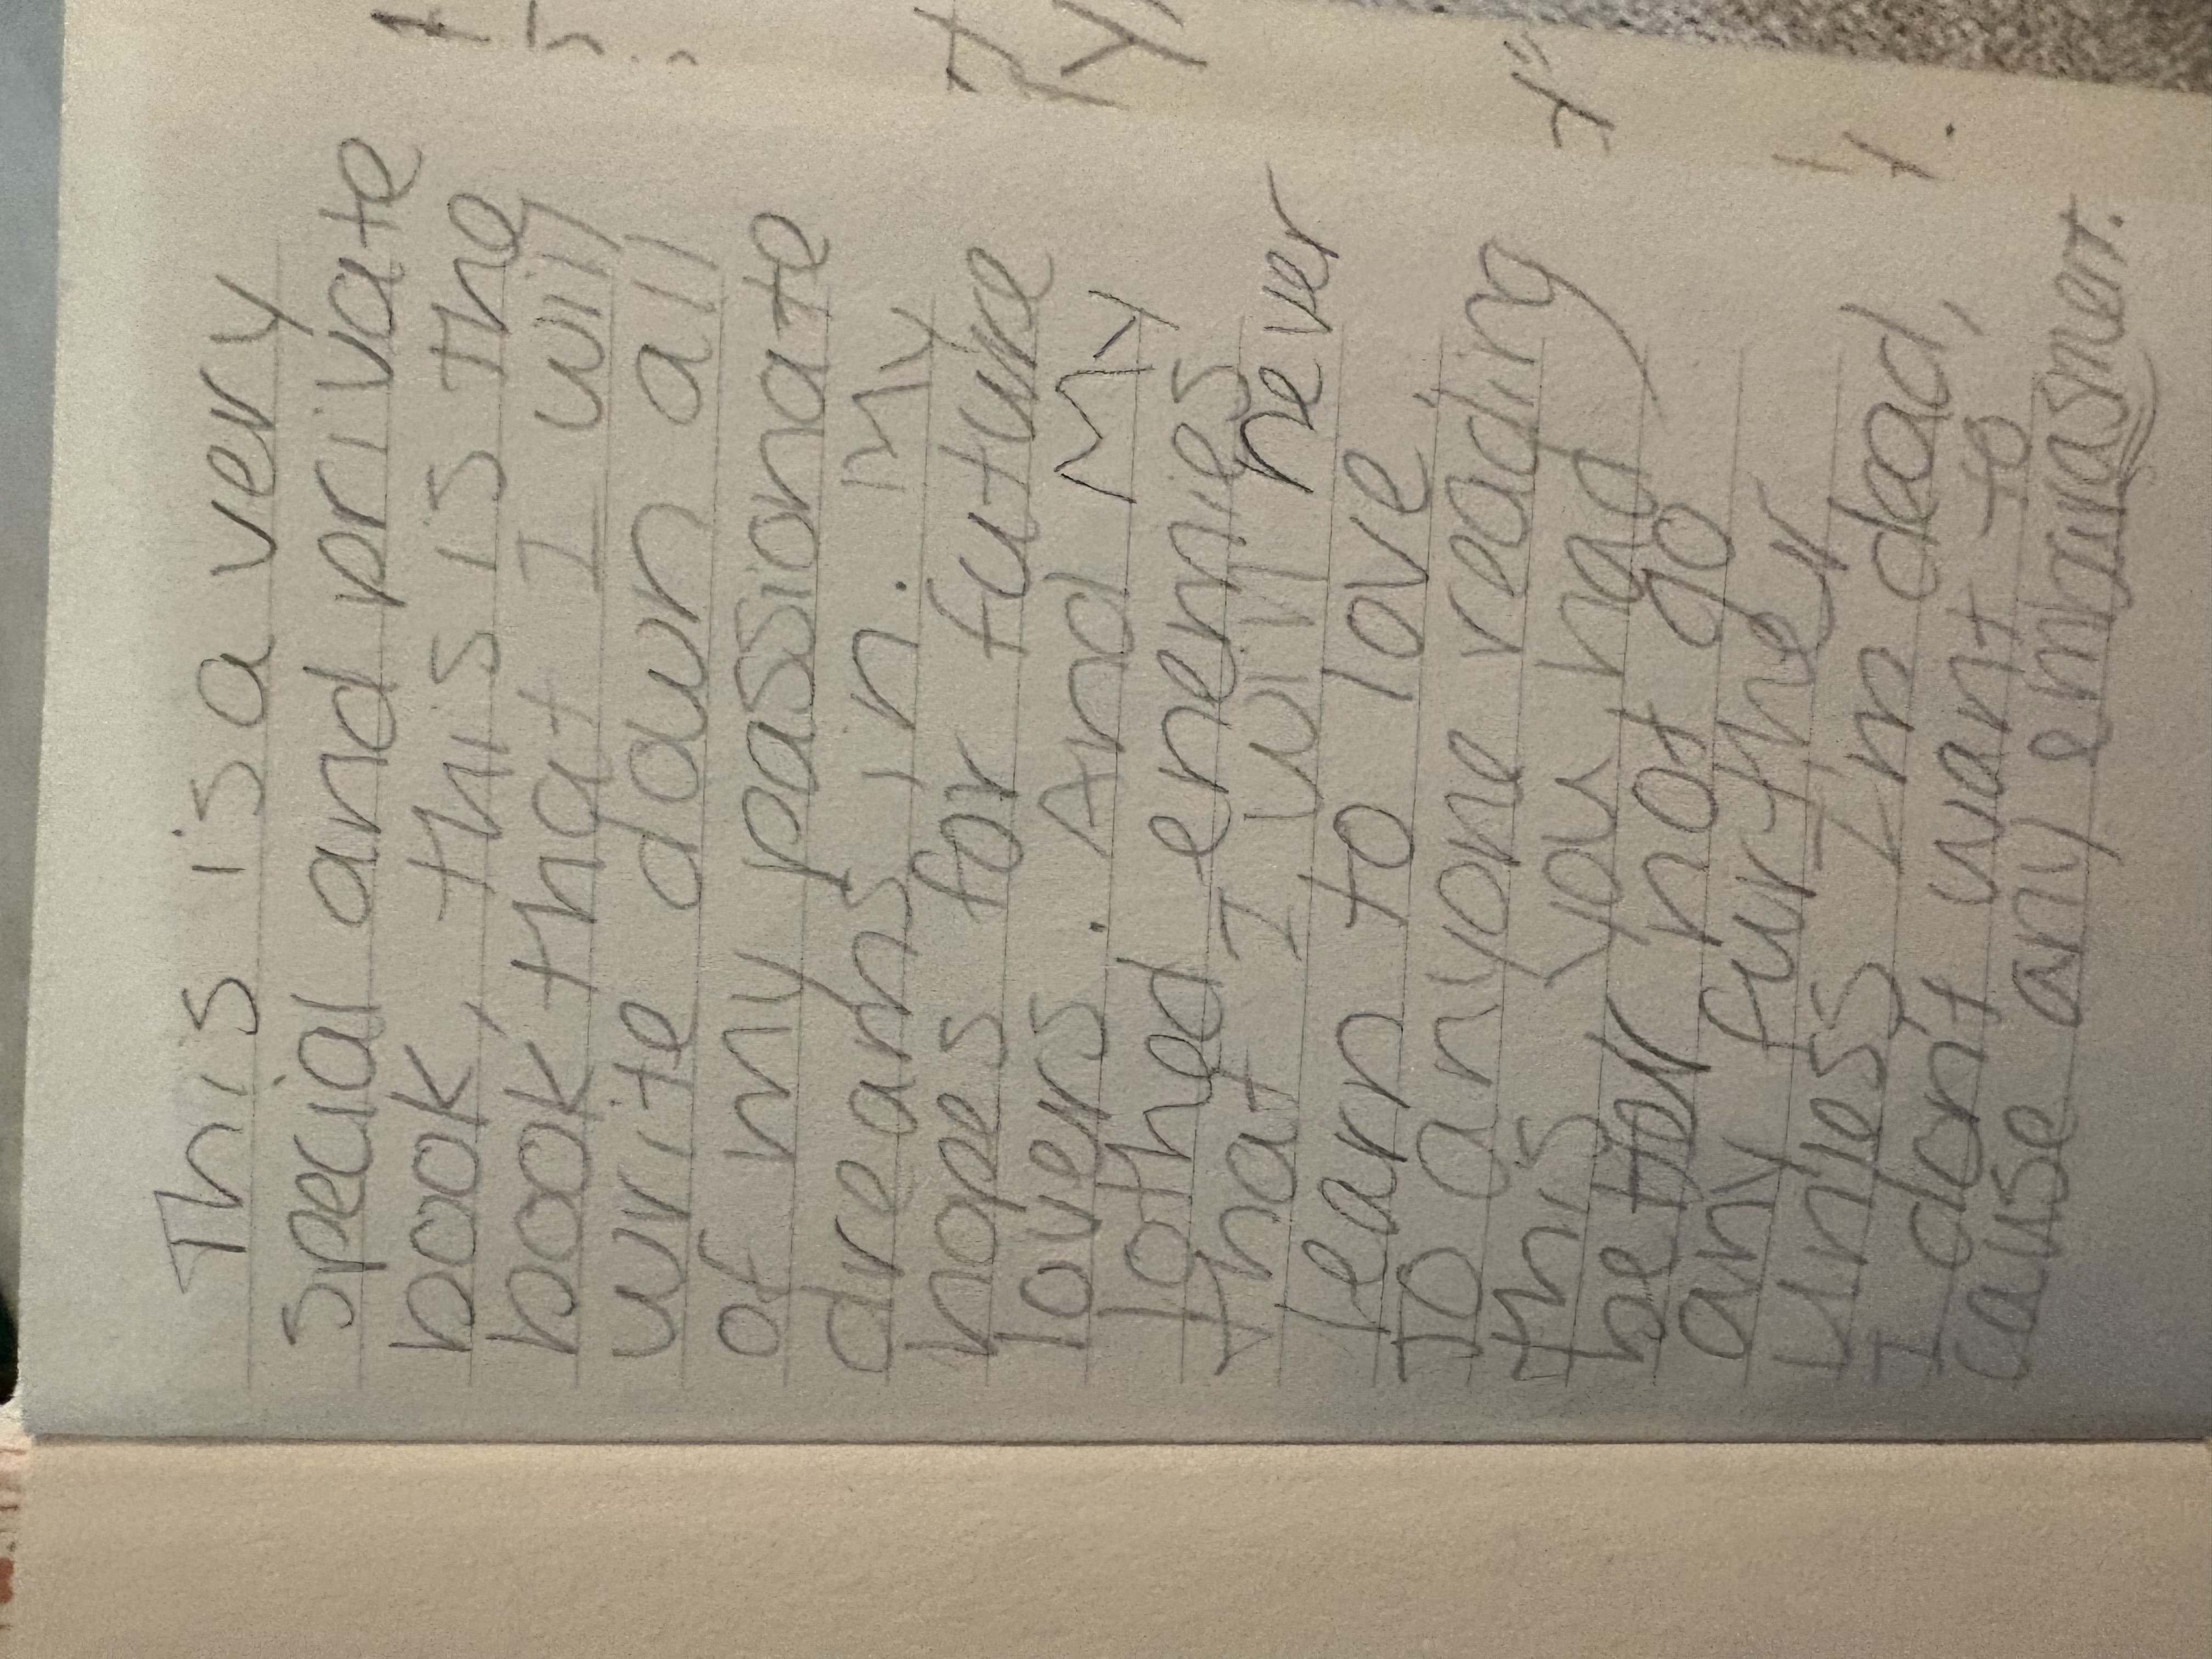 This is a very
special and private
book, this is the
book that I will
write down all
of my passionate
dreams in. My
hopes for future
lovers. And My
lothed enemies
that I will never
learn to love
To anyone reading
this you had
better not go
any further
unless I'm dead,
I don't want to
cause any embarrasment.